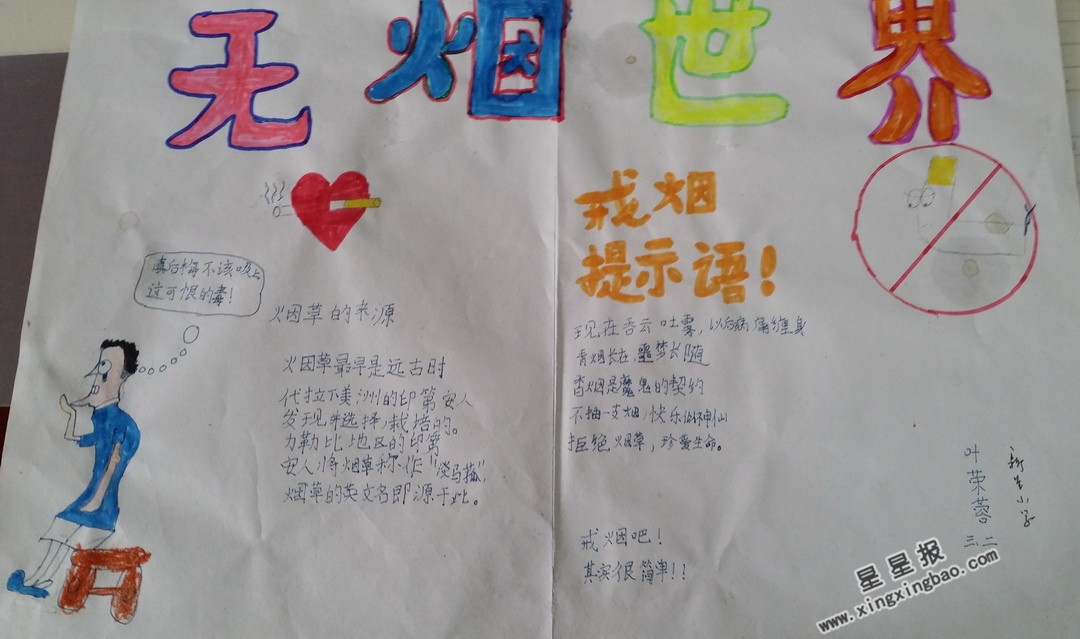 无烟世界
真后悔不该吸上
这可恨的毒!
烟草的来源
烟草最早是远古时
代拉丁美洲的印第安人
发现并选择,栽培的。
力勒比地区的印第
安人将烟草称作“淡马菰”,
烟草的英文名即源于此。
戒烟
提示语!
现在吞云吐雾,以后病痛缠身
青烟长在,噩梦长随
香烟是魔鬼的契约
不抽一支烟,快乐似神仙
拒绝烟草,珍爱生命。
戒烟吧!
其实很简单!!
小学
叶荣蓉
三.二
星星报
www.xingxingbao.com